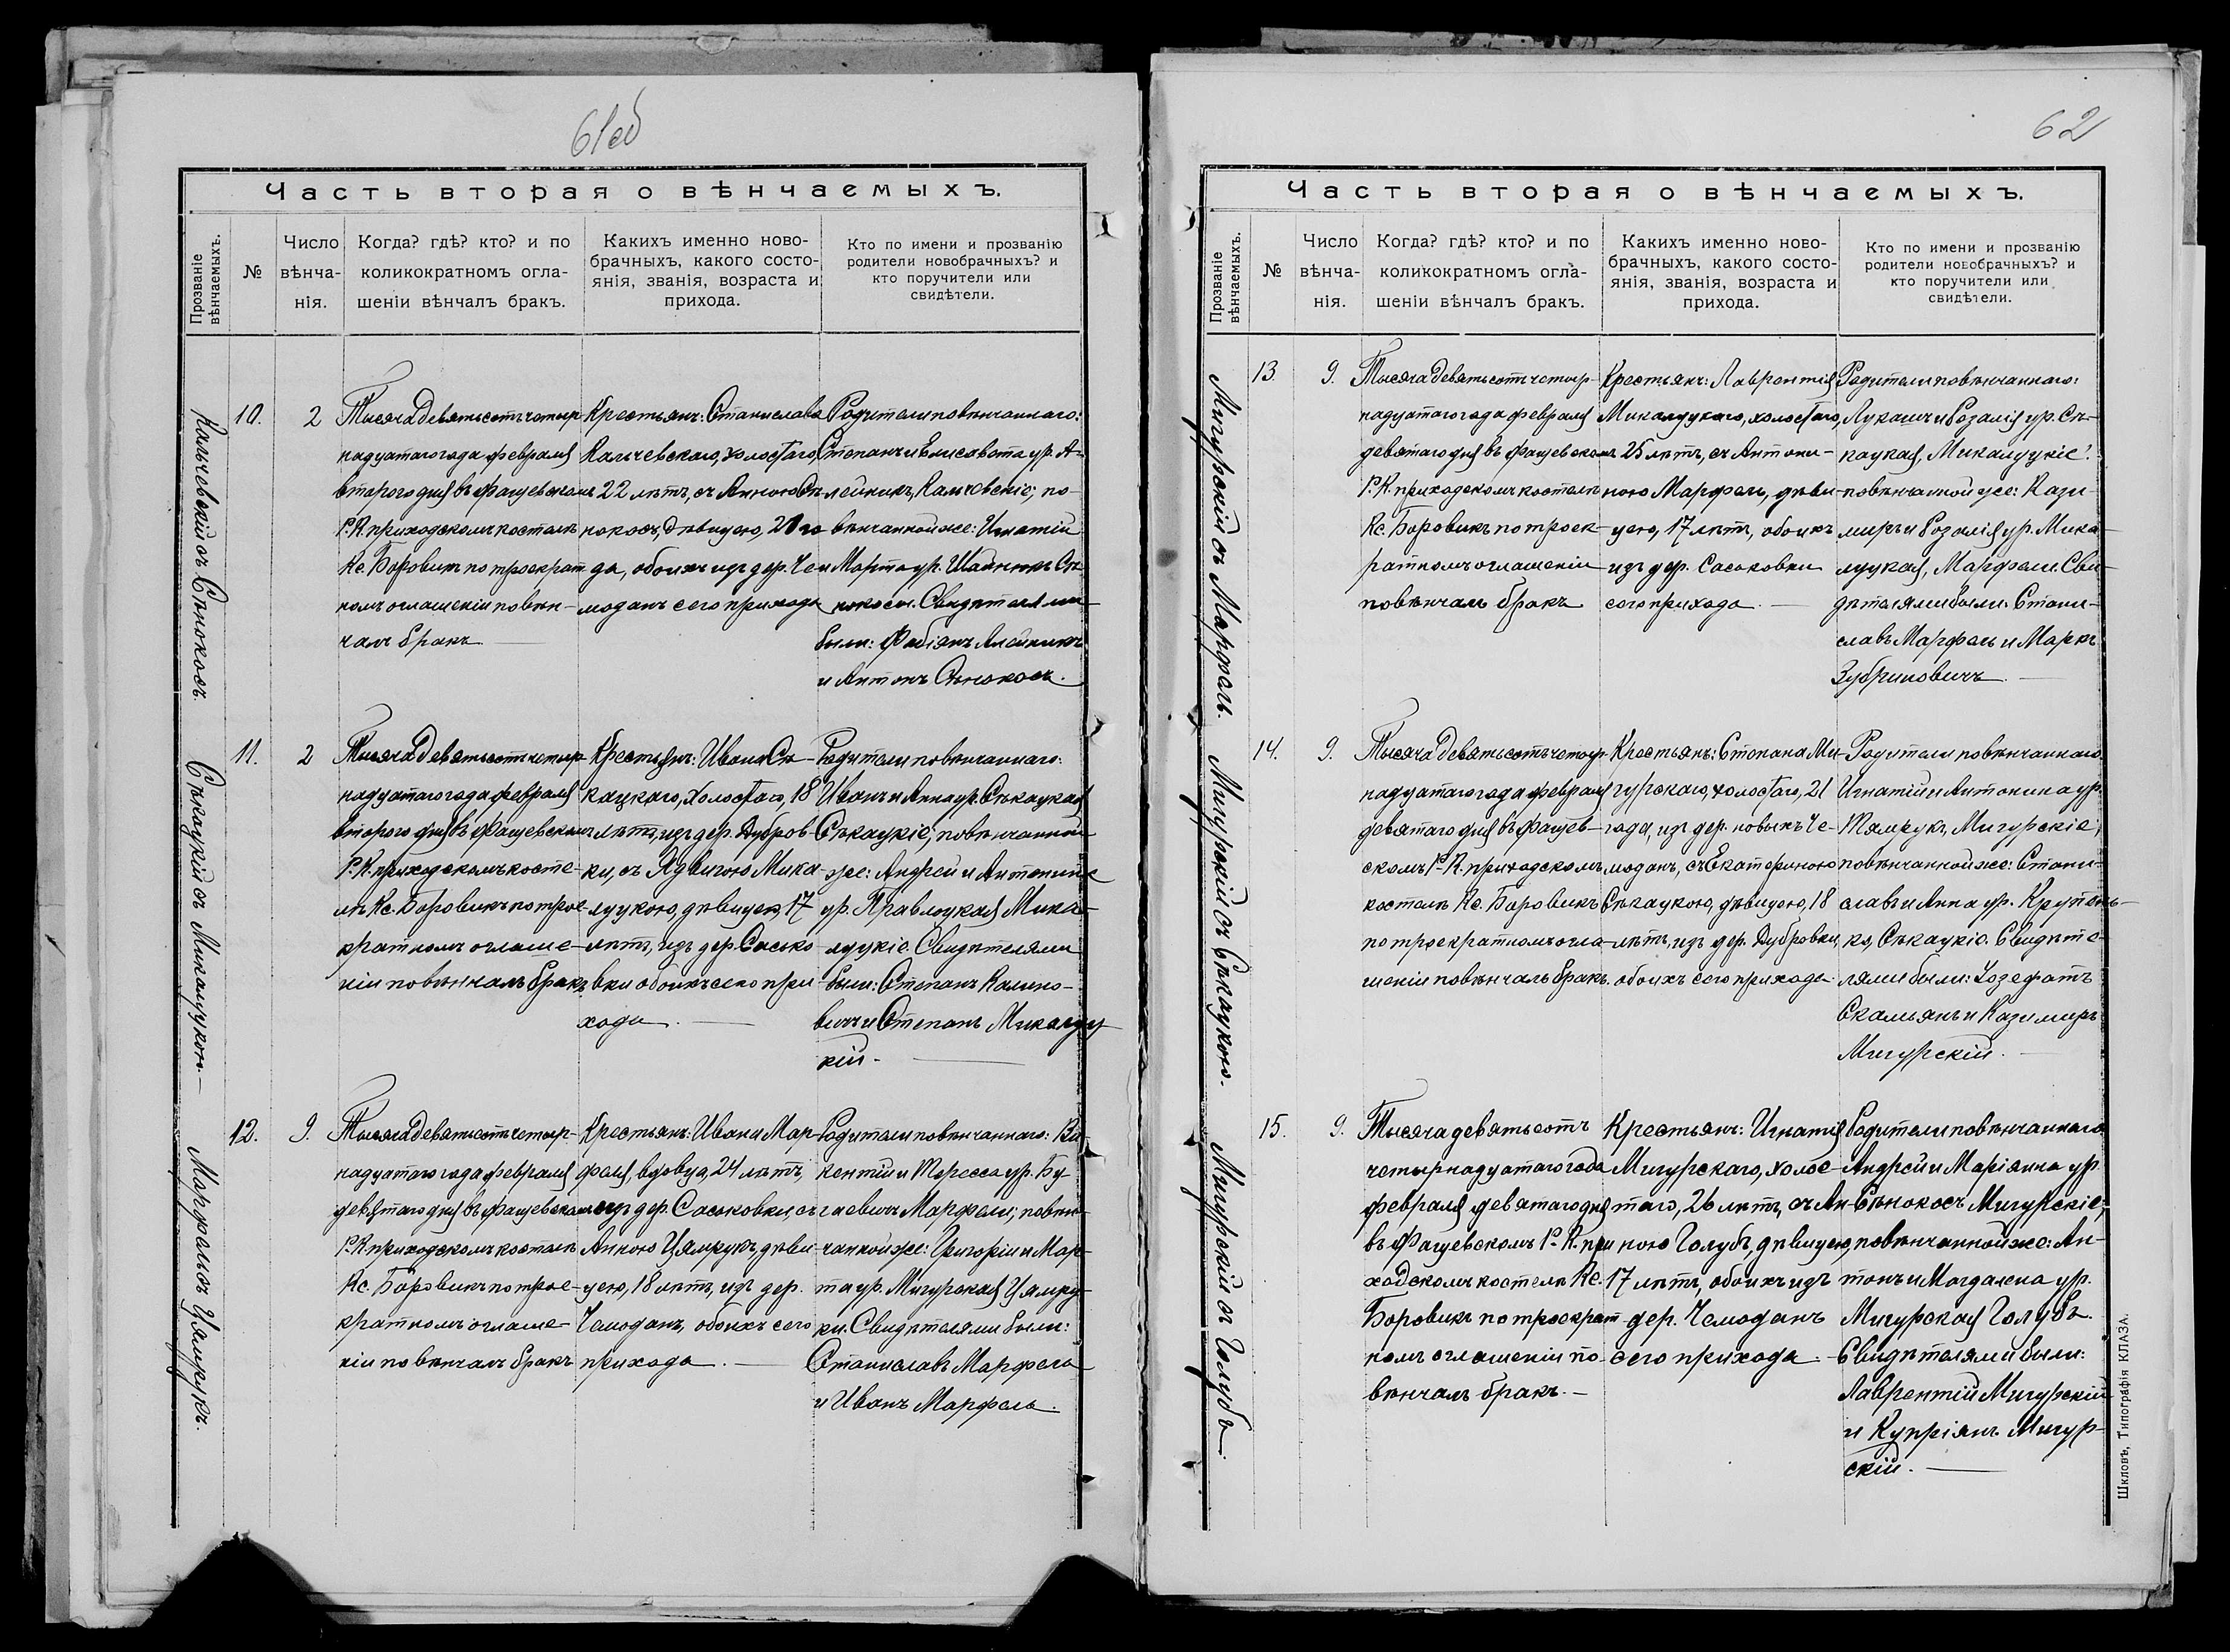 61об
Часть вторая о вѣнчаемыхъ.
Прозваніе вѣнчаемыхъ.
№
Число вѣнча-
нія.
Когда? гдѣ? кто? и по
коликократномъ огла-
шеніи вѣнчалъ бракъ.
Какихъ именно ново-
брачныхъ, какого состо-
янія, званія, возраста и
прихода.
Кто по имени и прозванію
родители новобрачныхъ? и
кто поручители или
свидѣтели.
Кальчевскій съ Сѣнокосъ.
10.
2
Тысяча девятьсотъ четыр-
надцатаго года февраля
второго дня въ Фащевскомъ
Р. К. приходскомъ костелѣ
Кс. Боровикъ по троекрат
номъ оглашеніи повѣн-
чалъ бракъ
Крестьянъ: Станислава
Кальчевскаго, холостаго,
22 лѣтъ, съ Анною Сѣ
нокосъ, дѣвицею, 21 го
да, обоихъ изъ дер. Че
моданъ сего прихода
Родители повѣнчаннаго:
Степанъ и Елисавета ур. А-
лейникъ, Кальчевскіе; по-
вѣнчанной же: Игнатій
и Марта ур. Шайнюкъ Сѣ
нокосы. Свидѣтелями
были: Фабіянъ Алейникъ
и Антонъ Сѣнокосъ.
Сѣкацкій съ Микалуцкою.
11.
2
Тысяча девятьсотъ четыр
надцатаго года февраля
второго дня въ Фащевскомъ
Р. К. приходскомъ косте-
лѣ Кс. Боровикъ по трое-
кратномъ оглаше-
ніи повѣнчалъ бракъ
Крестьянъ: Ивана Сѣ-
кацкаго, холостаго, 18
лѣтъ, изъ дер. Дубров-
ки, съ Ядвигою Мика-
луцкою, дѣвицею, 17
лѣтъ, изъ дер. Сасько-
вки обоихъ сего при-
хода.
Родители повѣнчаннаго:
Иванъ и Анна ур. Сѣкацкая
Сѣкацкіе; повѣнчанной
же: Андрей и Антонина
ур. Правлоцкая Мика-
луцкіе. Свидѣтелями
были: Степанъ Калино-
вичъ и Степанъ Микалуц
кій.
Марфель съ Цямрукъ.
12.
9.
Тысяча девятьсотъ четыр-
надцатаго года февраля
девятаго дня въ Фащевскомъ
Р. К. приходскомъ костелѣ
Кс. Боровикъ по трое-
кратномъ оглаше-
ніи повѣнчалъ бракъ
Крестьянъ: Ивана Мар-
феля, вдовца, 24 лѣтъ,
изъ дер. Саськовки, съ
Анною Цямрукъ, дѣви-
цею, 18 лѣтъ, изъ дер.
Чемоданъ, обоихъ сего
прихода.
Родители повѣнчаннаго: Ви
кентій и Тересса ур. Бу-
гаевичъ Марфели; повѣн-
чанной же: Григорій и Мар-
та ур. Мигурская Цямру-
ки. Свидѣтелями были:
Станиславъ Марфель
и Иванъ Марфель.
62
Часть вторая о вѣнчаемыхъ.
Прозваніе вѣнчаемыхъ.
№
Число вѣнча-
нія.
Когда? гдѣ? кто? и по
коликократномъ огла-
шеніи вѣнчалъ бракъ.
Какихъ именно ново-
брачныхъ, какого состо-
янія, званія, возраста и
прихода.
Кто по имени и прозванію
родители новобрачныхъ? и
кто поручители или
свидѣтели.
Мигурскій съ Марфель.
13.
9.
Тысяча девятьсотъ четыр-
надцатаго года февраля
девятаго дня въ Фащевскомъ
Р. К. приходскомъ костелѣ
Кс. Боровикъ по троек-
ратномъ оглашеніи
повѣнчалъ бракъ
Крестьянъ: Лаврентія
Микалуцкаго, холостаго,
25 лѣтъ, съ Антони-
ною Марфель, дѣви-
цею, 17 лѣтъ, обоихъ
изъ дер. Саськовки
сего прихода.
Родители повѣнчаннаго:
Лукашъ и Розалія ур. Сѣ-
кацкая, Микалуцкіе;
повѣнчанной же: Кази-
миръ и Розалія ур. Мика-
луцкая, Марфели. Сви-
дѣтелями были: Стани-
славъ Марфель и Маркъ
Зубриновичъ
Мигурскій съ Сѣкацкою.
14.
9.
Тысяча девятьсотъ четыр
надцатаго года февраля
девятаго дня въ Фащев-
скомъ Р. К. приходскомъ
костелѣ Кс. Боровикъ
по троекратномъ огла-
шеніи повѣнчалъ бракъ.
Крестьянъ: Степана Ми-
гурскаго, холостаго, 21
года, изъ дер. новыхъ Че-
моданъ, съ Екатериною
Сѣкацкою, дѣвицею, 18
лѣтъ, изъ дер. Дубровки,
обоихъ сего прихода.
Родители повѣнчаннаго
Игнатій и Антонина ур.
Тямрукъ, Мигурскіе;
повѣнчанной же: Стани-
славъ и Анна ур. Крупень-
ко, Сѣкацкіе. Свидѣте-
лями были: Іозефатъ
Скальянъ и Казимиръ
Мигурскій.
Мигурскій съ Голубъ.
15.
9.
Тысяча девятьсотъ
четырнадцатаго года
февраля девятаго дня
въ Фащевскомъ Р. К. при
ходскомъ костелѣ Кс.
Боровикъ по троекрат-
номъ оглашеніи по-
вѣнчалъ бракъ.
Крестьянъ: Игнатія
Мигурскаго, холос-
таго, 26 лѣтъ, съ Ан-
ною Голубъ, дѣвицею,
17 лѣтъ, обоихъ изъ
дер. Чемоданъ
сего прихода.
Родители повѣнчаннаго
Андрей и Маріянна ур.
Сѣнокосъ Мигурскіе;
повѣнчанной же: Ан-
тонъ и Магдалена ур.
Мигурская Голубъ.
Свидѣтелями были:
Лаврентій Мигурскій
и Купріянъ Мигур-
скій.
Шкловъ, Типографія КЛАЗА.